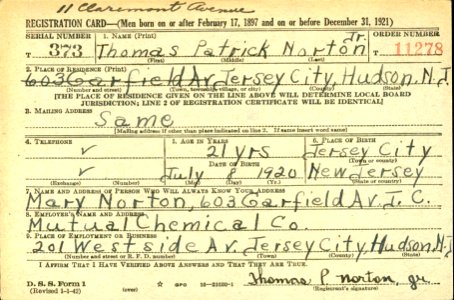 11 Claremont Avenue
REGISTRATION CARD—(Men born on or after February 17, 1897 and on or before December 31, 1921)
SERIAL NUMBER 1. NAME (Print) ORDER NUMBER
T 373 Thomas Patrick Norton Jr. T 11278
(First) (Middle) (Last)
2. PLACE OF RESIDENCE (Print)
603 Garfield Av. Jersey City, Hudson, N.J.
(Number and street) (Town, township, village, or city) (County) (State)
[THE PLACE OF RESIDENCE GIVEN ON THE LINE ABOVE WILL DETERMINE LOCAL BOARD
JURISDICTION; LINE 2 OF REGISTRATION CERTIFICATE WILL BE IDENTICAL]
3. MAILING ADDRESS
Same
[Mailing address if other than place indicated on line 2. If same insert word same]
4. TELEPHONE 5. AGE IN YEARS 6. PLACE OF BIRTH
✓ 21 yrs Jersey City
DATE OF BIRTH (Town or county)
✓ July 8 1920 New Jersey
(Exchange) (Number) (Mo.) (Day) (Yr.) (State or country)
7. NAME AND ADDRESS OF PERSON WHO WILL ALWAYS KNOW YOUR ADDRESS
Mary Norton, 603 Garfield Av. J. C.
8. EMPLOYER'S NAME AND ADDRESS
Mutual Chemical Co.
9. PLACE OF EMPLOYMENT OR BUSINESS
201 West side Av. Jersey City, Hudson, N.J.
(Number and street or R. F. D. number) (Town) (County) (State)
I AFFIRM THAT I HAVE VERIFIED ABOVE ANSWERS AND THAT THEY ARE TRUE.
D. S. S. Form 1 GPO Thomas P. Norton, Jr
(Revised 1-1-42) (over) (Registrant's signature)